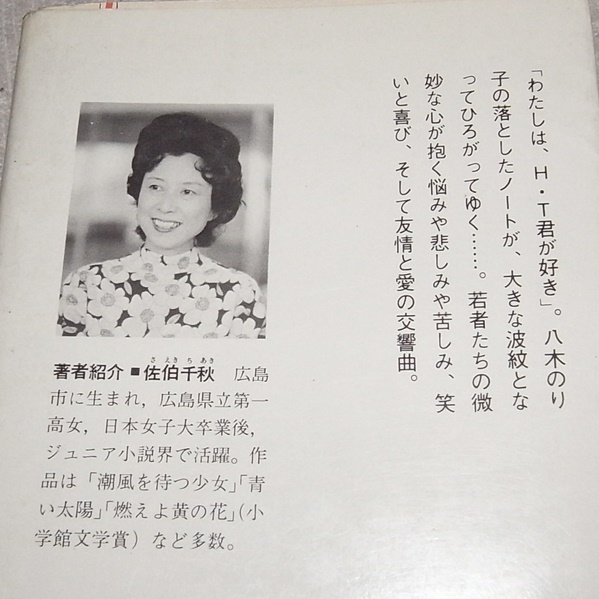 「わたしは、H・T君が好き」。八木のり
子の落としたノートが、大きな波紋とな
ってひろがってゆく……。若者たちの微
妙な心が抱く悩みや悲しみや苦しみ、笑
いと喜び、そして友情と愛の交響曲。
著者紹介■佐伯千秋 広島
さえきちあき
市に生まれ，広島県立第一
高女，日本女子大卒業後，
ジュニア小説界で活躍。作
品は「潮風を待つ少女」「青
い太陽」「燃えよ黄の花」（小
学館文学賞）など多数。